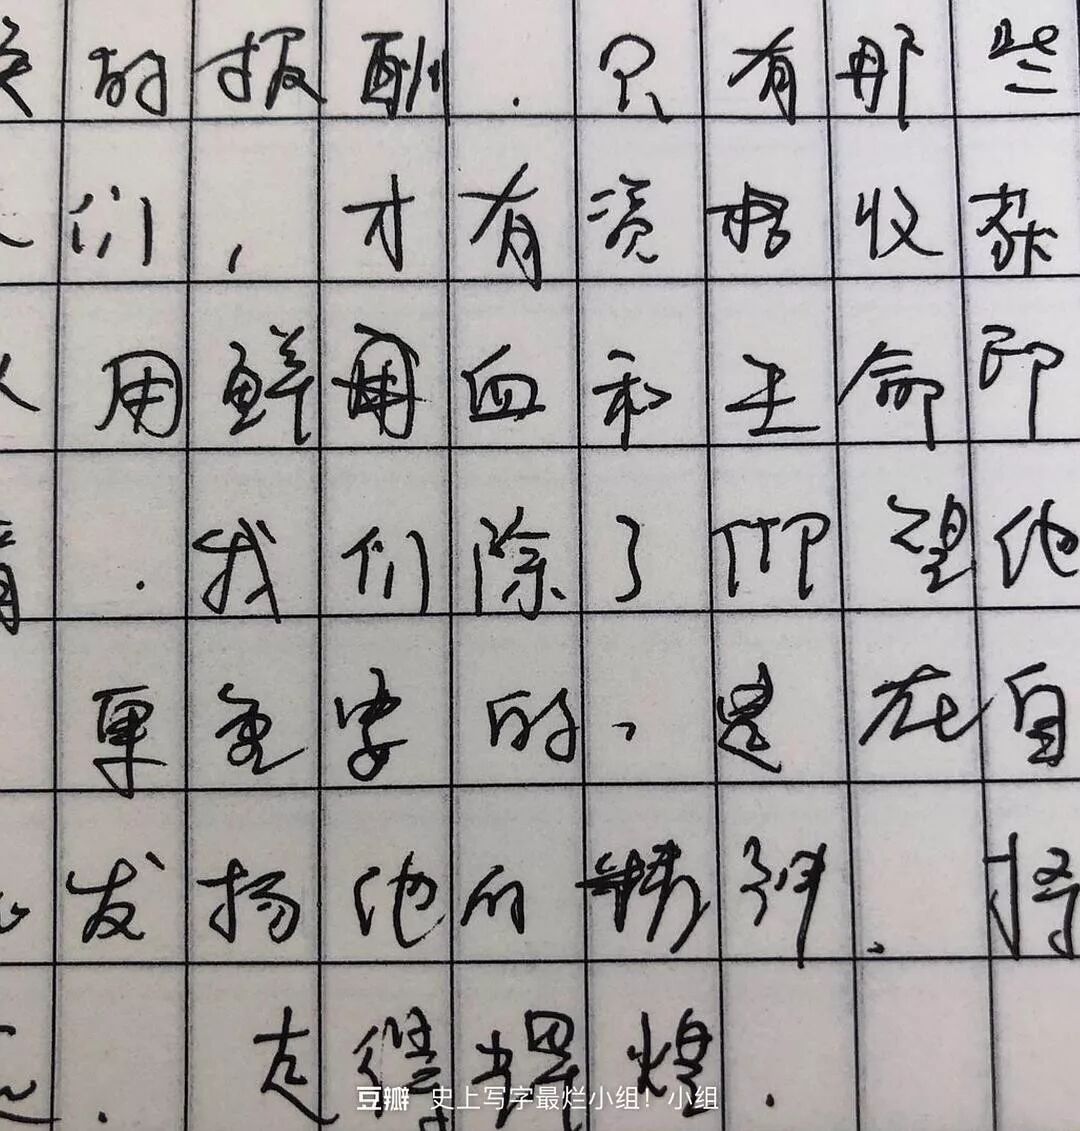 的报酬.只有那些
们,才有资格收获
用鲜血和生命即
.我们除了仰望他
更重要的,是在自
发扬他的精神.将
.走得辉煌.
豆瓣 史上写字最烂小组!小组